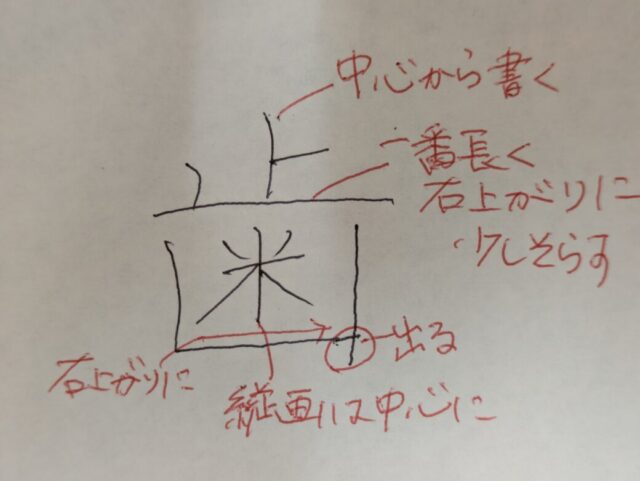 中心から書く
一番長く
右上がりに
少しそらす
歯
出る
右上がりに
縦画は中心に